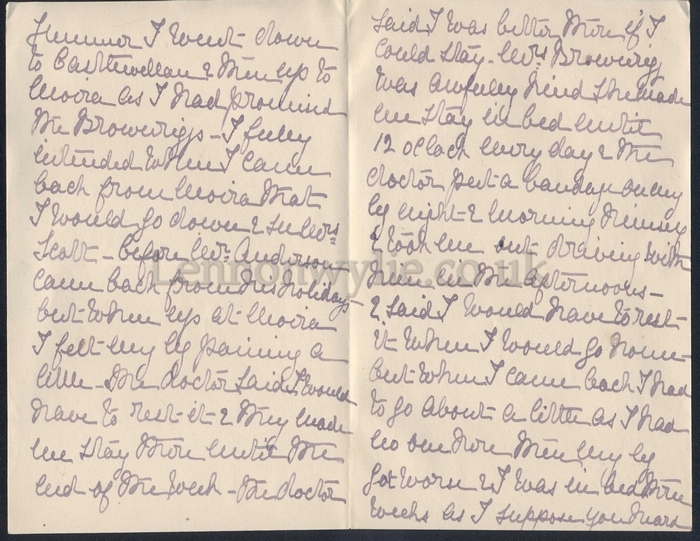 Summer I went down
to Castlewellan & then up to
Moira as I had promised
the Brownriggs - I fully
intended when I came
back from Moira that
I would go down & see Mrs
Scott - before Mr. Anderson
came back from his holidays
but when up at Moira
I felt my leg paining a
little - the doctor said I would
have to rest it & they made
me stay there until the
end of the week - the doctor
said I was better there if I
could stay - Mrs Brownrigg
was awfully kind she made
me stay in bed until
12 oclock every day & the
doctor put a bandage on my
leg night & morning himself
& took me out driving with
him in the afternoons -
& said I would have to rest
it when I would go home -
but when I came back I had
to go about a little as I had
no one here then my leg
got worse & I was in bed three
weeks as I suppose you heard
Lennonwylie.co.uk